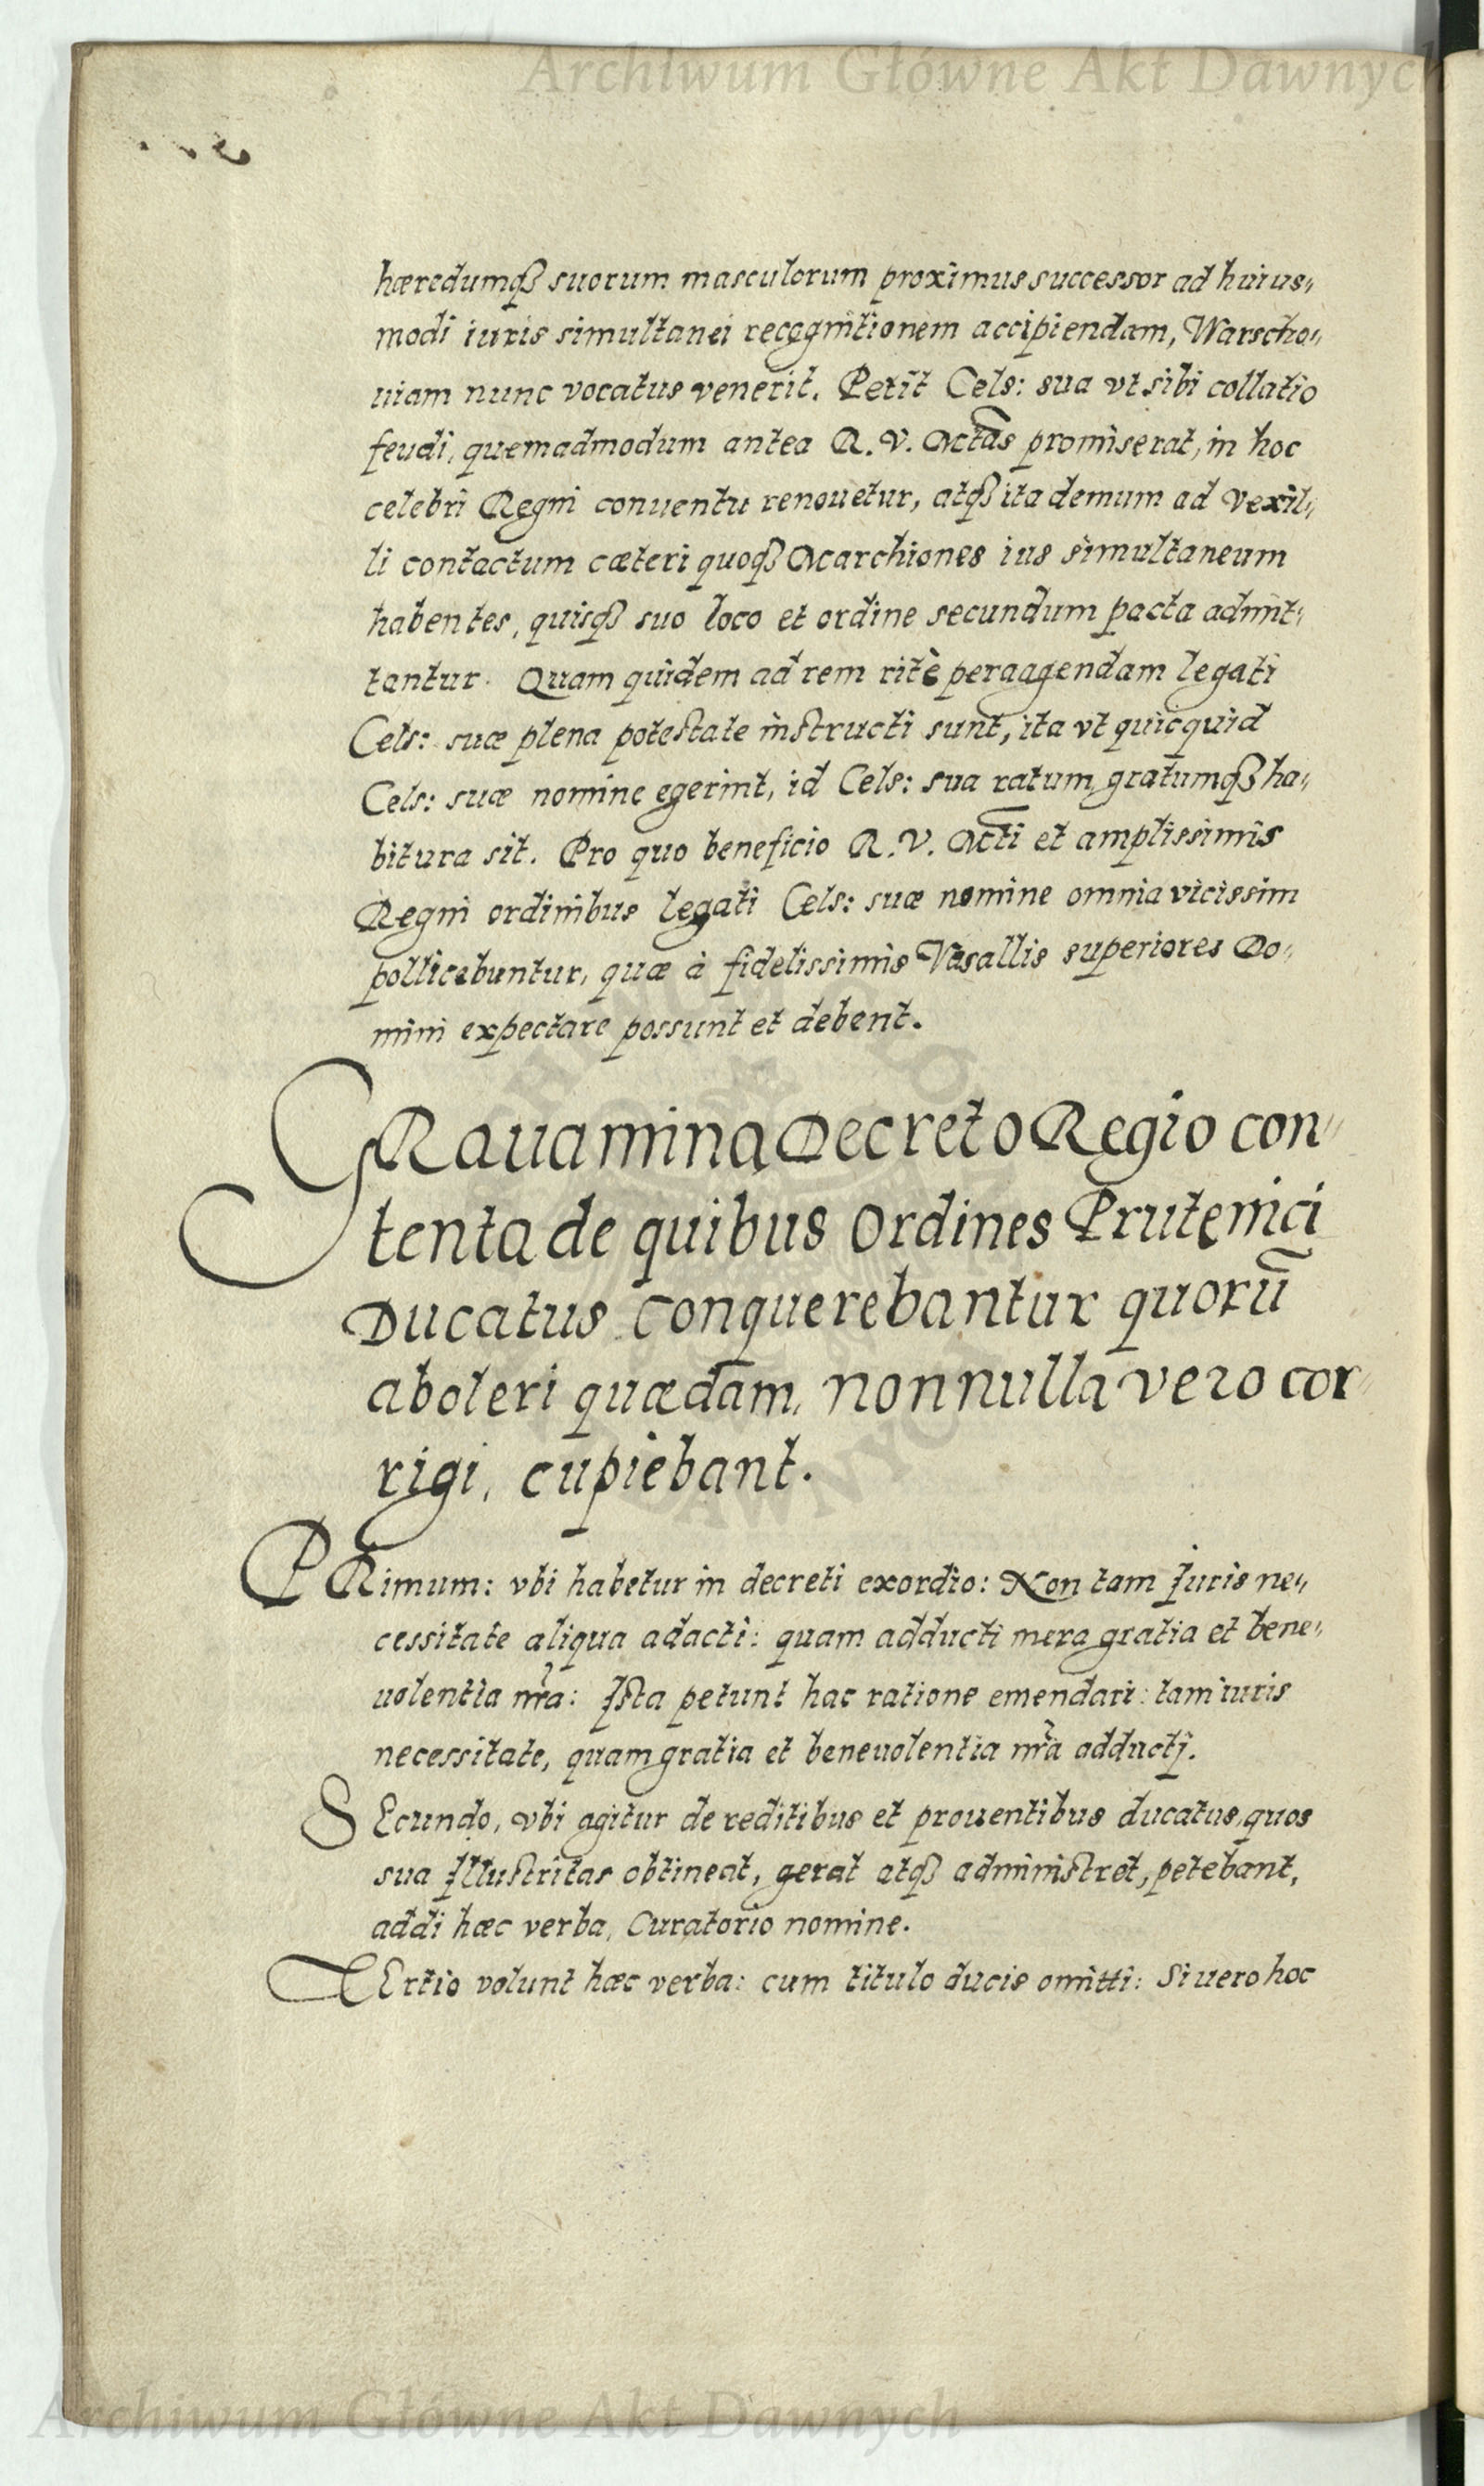 Archiwum Główne Akt Dawnych
hæredumqȝ suorum masculorum proximus successor ad huius„
modi iuris simultanei recognitionem accipiendam, Warscho„
uiam nunc vocatus venerit. Petit Cels: sua vt sibi collatio
feudi, quemadmodum antea R. V. Mtas promiserat, in hoc
celebri Regni conuentu renouetur, atqȝ ita demum ad vexil„
li contactum cæteri quoqȝ Marchiones ius simultaneum
habentes, quisqȝ suo loco et ordine secundum pacta admit„
tantur. Quam quidem ad rem ritè peraagendam legati
Cels: suæ plena potestate instructi sunt, ita vt quicquid
Cels: suæ nomine egerint, id Cels: sua ratum gratumqȝ ha„
bitura sit. Pro quo beneficio R. V. Mti et amplissimis
Regni ordinibus legati Cels: suæ nomine omnia vicissim
pollicebuntur, quæ à fidelissimis Vasallis superiores Do„
mini expectare possunt et debent.
GRauamina Decreto Regio con„
tenta de quibus Ordines Prutenici
Ducatus conquerebantur quorū
aboleri quædam, nonnulla vero cor„
rigi, cupiebant.
PRimum: vbi habetur in decreti exordio: Non tam Iuris ne„
cessitate aliqua adacti: quam adducti mera gratia et bene„
uolentia nr̃a: Ista petunt hac ratione emendari: tam iuris
necessitate, quam gratia et beneuolentia nr̃a adductj.
SEcundo, vbi agitur de reditibus et prouentibus ducatus, quos
sua Illustritas obtineat, gerat atqȝ administret, petebant,
addi hæc verba, Curatorio nomine.
TErtio volunt hæc verba: cum titulo ducis omitti: Si uero hoc
Archiwum Główne Akt Dawnych